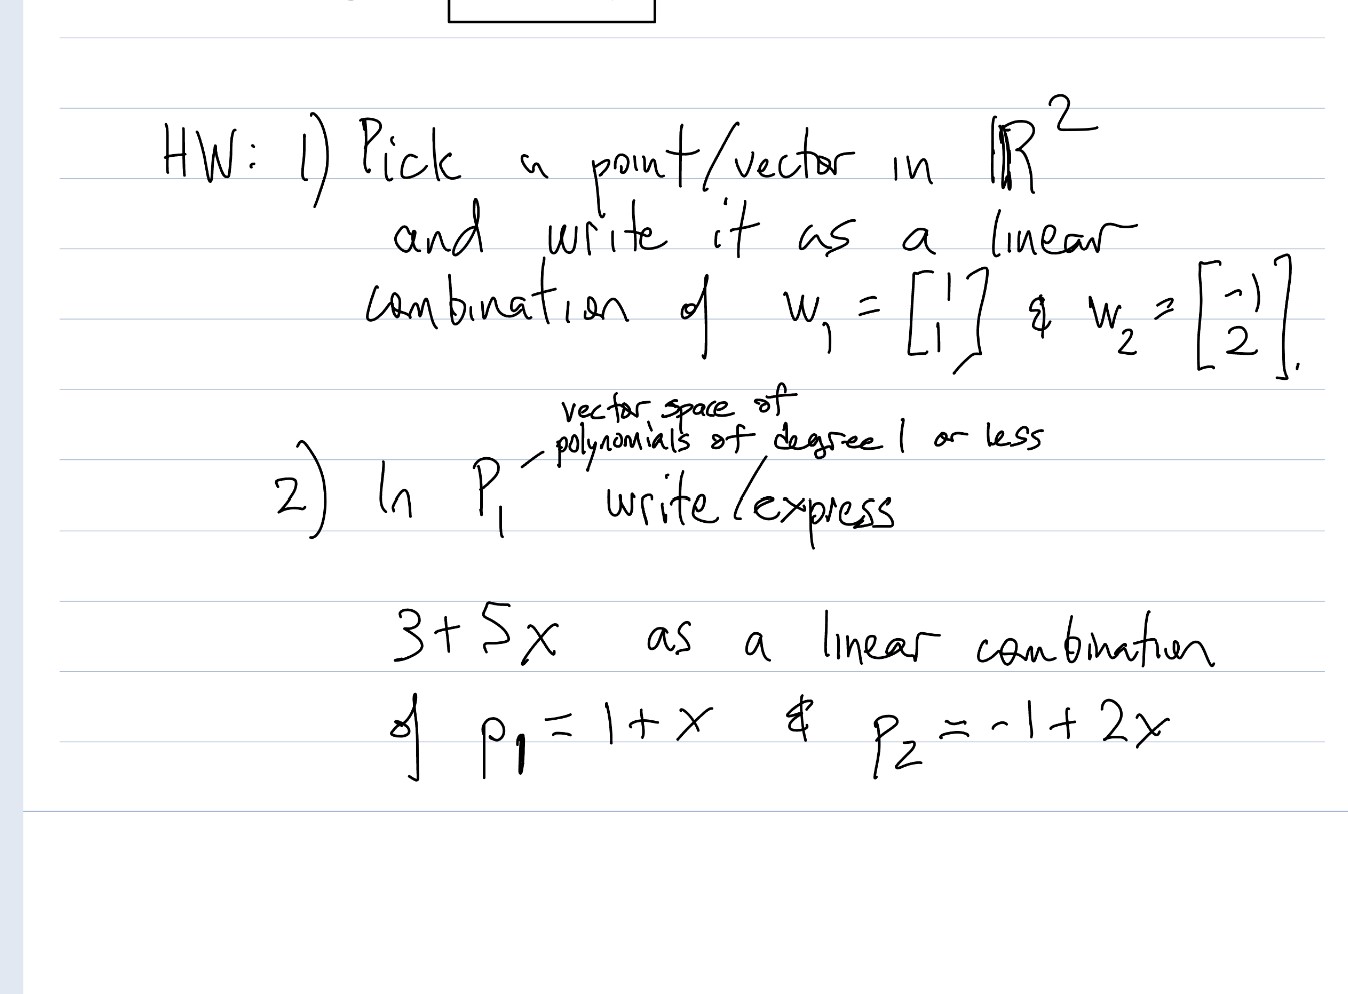 HW: 1) Pick a point/vector in ℝ²
and write it as a linear
combination of w₁ = [1 1] & w₂ = [-1 2].
vector space of
polynomials of degree 1 or less
2) In P₁ write/express
3+5x as a linear combination
of p₁ = 1+x & p₂ = -1+2x